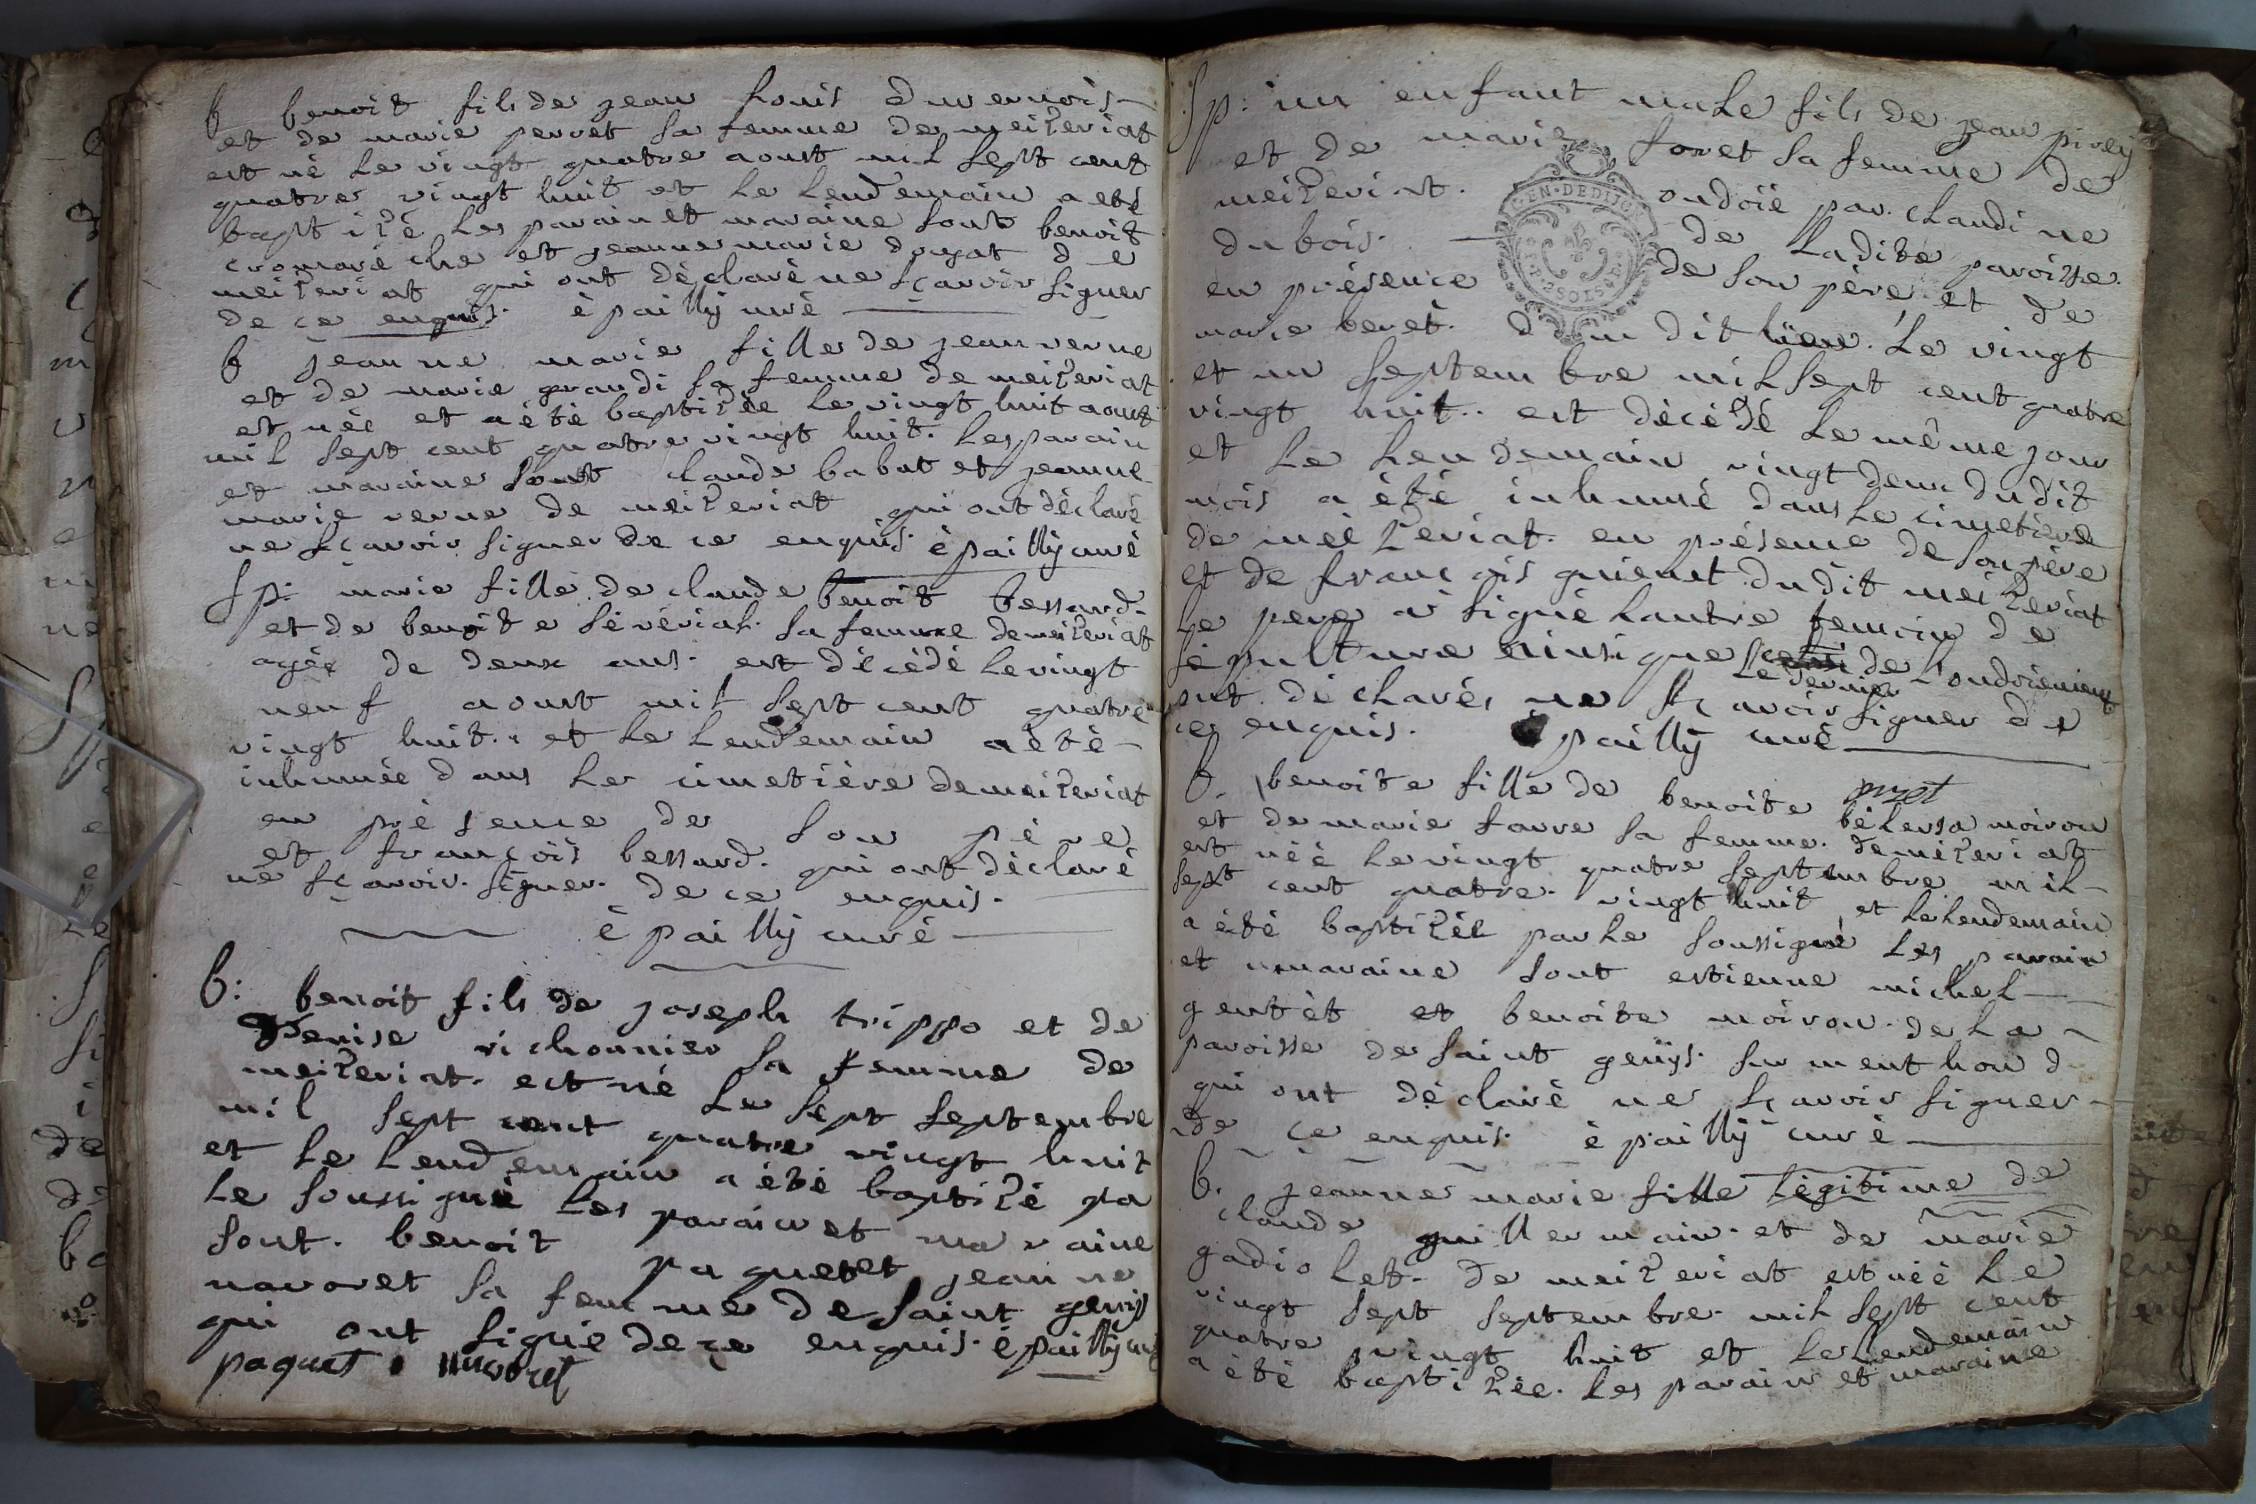 b benoit fils de jean louis duvernois
et de marie perret sa femme de meizeriat
est né le vingt quatre aoust mil sept cent
quatre vingt huit et le lendemain a eté
baptizé les parain et maraine sont benoit
cromaré che et jeanne marie douzat de
meizeriat qui ont déclaré ne sçavoir signer
de ce enquis. é pailly curé
b jeanne marie fille de jean verne
et de marie grandi sa femme de meizeriat
est née et a été baptizée le vingt huit aoust
mil sept cent quatre vingt huit. les parain
et maraine sont claude babat et jeanne
marie verne de meizeriat qui ont déclaré
ne sçavoir signer de ce enquis. é pailly curé
Sp: marie fille de claude benoit bessard
et de benoite sévériat. sa femme de meizeriat
agée de deux ans. est décédé le vingt
neuf aoust mil sept cent quatre
vingt huit. et le lendemain a été
inhumée dans le cimetière de meizeriat
en présence de son père
et françois bessard. qui ont déclaré
ne sçavoir. signer. de ce enquis.
é pailly curé
b: benoit fils de joseph trippo et de
denise richonnier sa femme de
meizeriat. est né le sept septembre
mil sept cent quatre vingt huit
et le lendemain a été baptizé pa
le soussigné les parain et maraine
sont. benoit paquet et jeanne
navoret sa femme de saint genis
qui ont signé de ce enquis. é pailly curé
paquet navoret
Sp: un enfant male fils de jean pirey
et de marie foret sa femme de
meizeriat. ondoié par. claudine
dubois. de ladite paroisse.
GEN. DE DIJON
2 SOLS
en présence de son père. et de
marie beret. du dit lieu. le vingt
et un septembre mil sept cent quatre
vingt huit.. est décédé le même jour
et le lendemain vingt deux dudit
mois a été inhumé dans le cimetière
de meizeriat. en présence de son père
et de françois guienet. dudit meizeriat
le pere a signé lautre temoin de
sépulture ainsi que de l'ondoiement
le dernier
ont déclarés ne sçavoir signer de
ce enquis. é pailly curé
b. benoite fille de benoite moiron
et de marie favre sa femme. de meizeriat
est néé le vingt quatre septembre mil
sept cent quatre. vingt huit, et le lendemain
a été baptizée par le soussigné les parain
et maraine sont estienne michel
gentet et benoite moiron. de la
paroisse de saint genys. sur menthon d
qui ont déclaré ne sçavoir signer
de ce enquis. é pailly curé
b. jeanne marie fille légitime de
claude guillermain. et de marie
gadiolet. de meizeriat est néé le
vingt sept septembre. mil sept cent
quatre vingt huit et le lendemain
a été baptizée. les parain et maraine